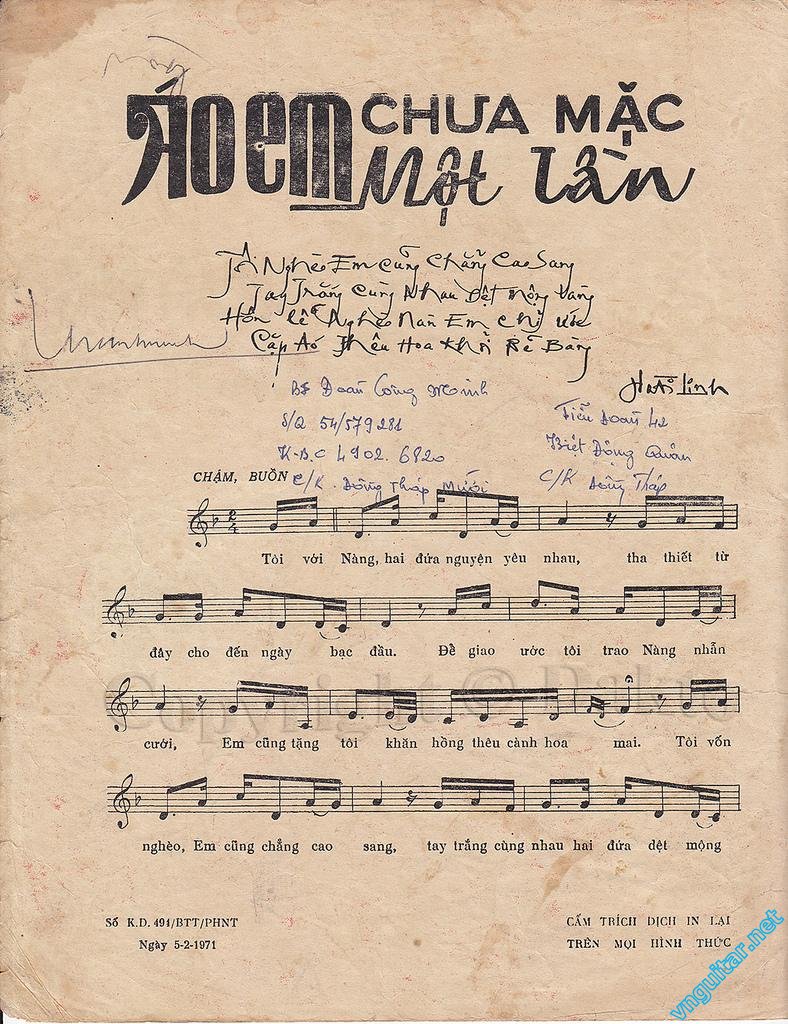 ÁO EM CHƯA MẶC
Một Lần
Tôi Nghèo Em Cũng Chẳng Cao Sang
Tay Trắng Cùng Nhau Dệt Mộng Vàng
Hôn lễ Nghèo Nàn Em chỉ ước
Cặp Áo Thêu Hoa Khi Rẽ Bàng
Hoài Linh
BS Đoàn Công Minh
S/Q 54/579281
K.B.C 4902. 6820
C/K Đồng Tháp Mười
Tiểu Đoàn 42
Biệt Động Quân
C/K Đồng Tháp
CHẬM, BUỒN
Tôi với Nàng, hai đứa nguyện yêu nhau, tha thiết từ
đây cho đến ngày bạc đầu. Để giao ước tôi trao Nàng nhẫn
cưới, Em cũng tặng tôi khăn hồng thêu cành hoa mai. Tôi vốn
nghèo, Em cũng chẳng cao sang, tay trắng cùng nhau hai đứa dệt mộng
Số K.D. 491/BTT/PHNT
Ngày 5-2-1971
CẤM TRÍCH DỊCH IN LẠI
TRÊN MỌI HÌNH THỨC
vnguitar.net